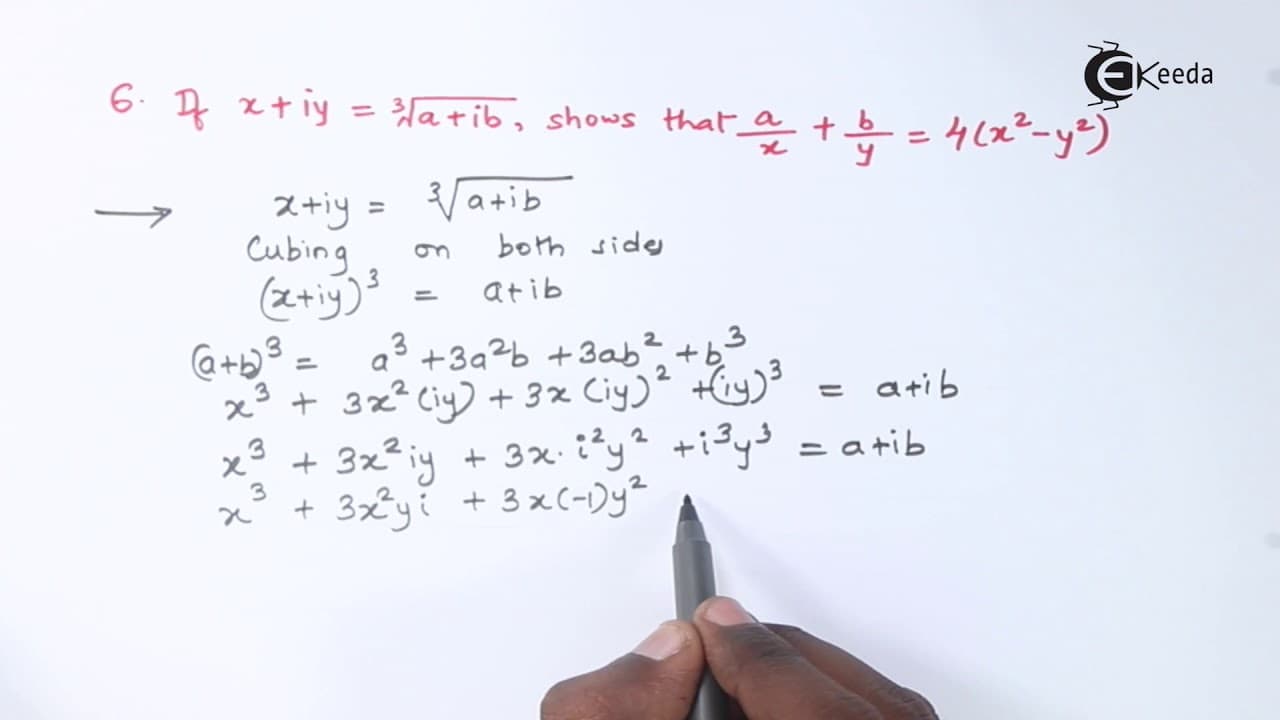 EKeeda
6. If x+iy = ∛(a+ib), shows that a/x + b/y = 4(x²-y²)
→ x+iy = ∛(a+ib)
Cubing on both side
(x+iy)³ = a+ib
(a+b)³ = a³ +3a²b +3ab² +b³
x³ + 3x²(iy) + 3x(iy)² +(iy)³ = a+ib
x³ + 3x²iy + 3x·i²y² +i³y³ = a+ib
x³ + 3x²yi + 3x(-1)y²